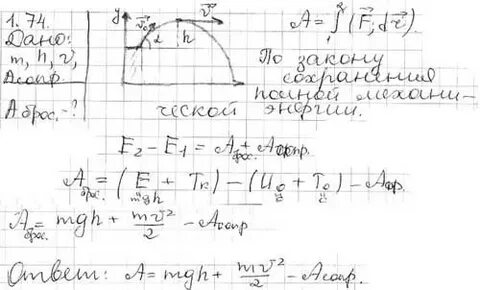 1.74.
Дано:
m, h, v,
Aсопр.
Aброс.-?
y v⃗₀ v⃗
α h
A = ∫₁² (F⃗, dr⃗)
По закону
сохранения
полной механи-
ческой энергии.
E₂ - E₁ = Aброс. + Aсопр.
Aброс. = (E + Tк) - (U₀ + T₀) - Aсопр.
mgh 0 0
Aброс. = mgh + mv²/2 - Aсопр.
Ответ: A = mgh + mv²/2 - Aсопр.